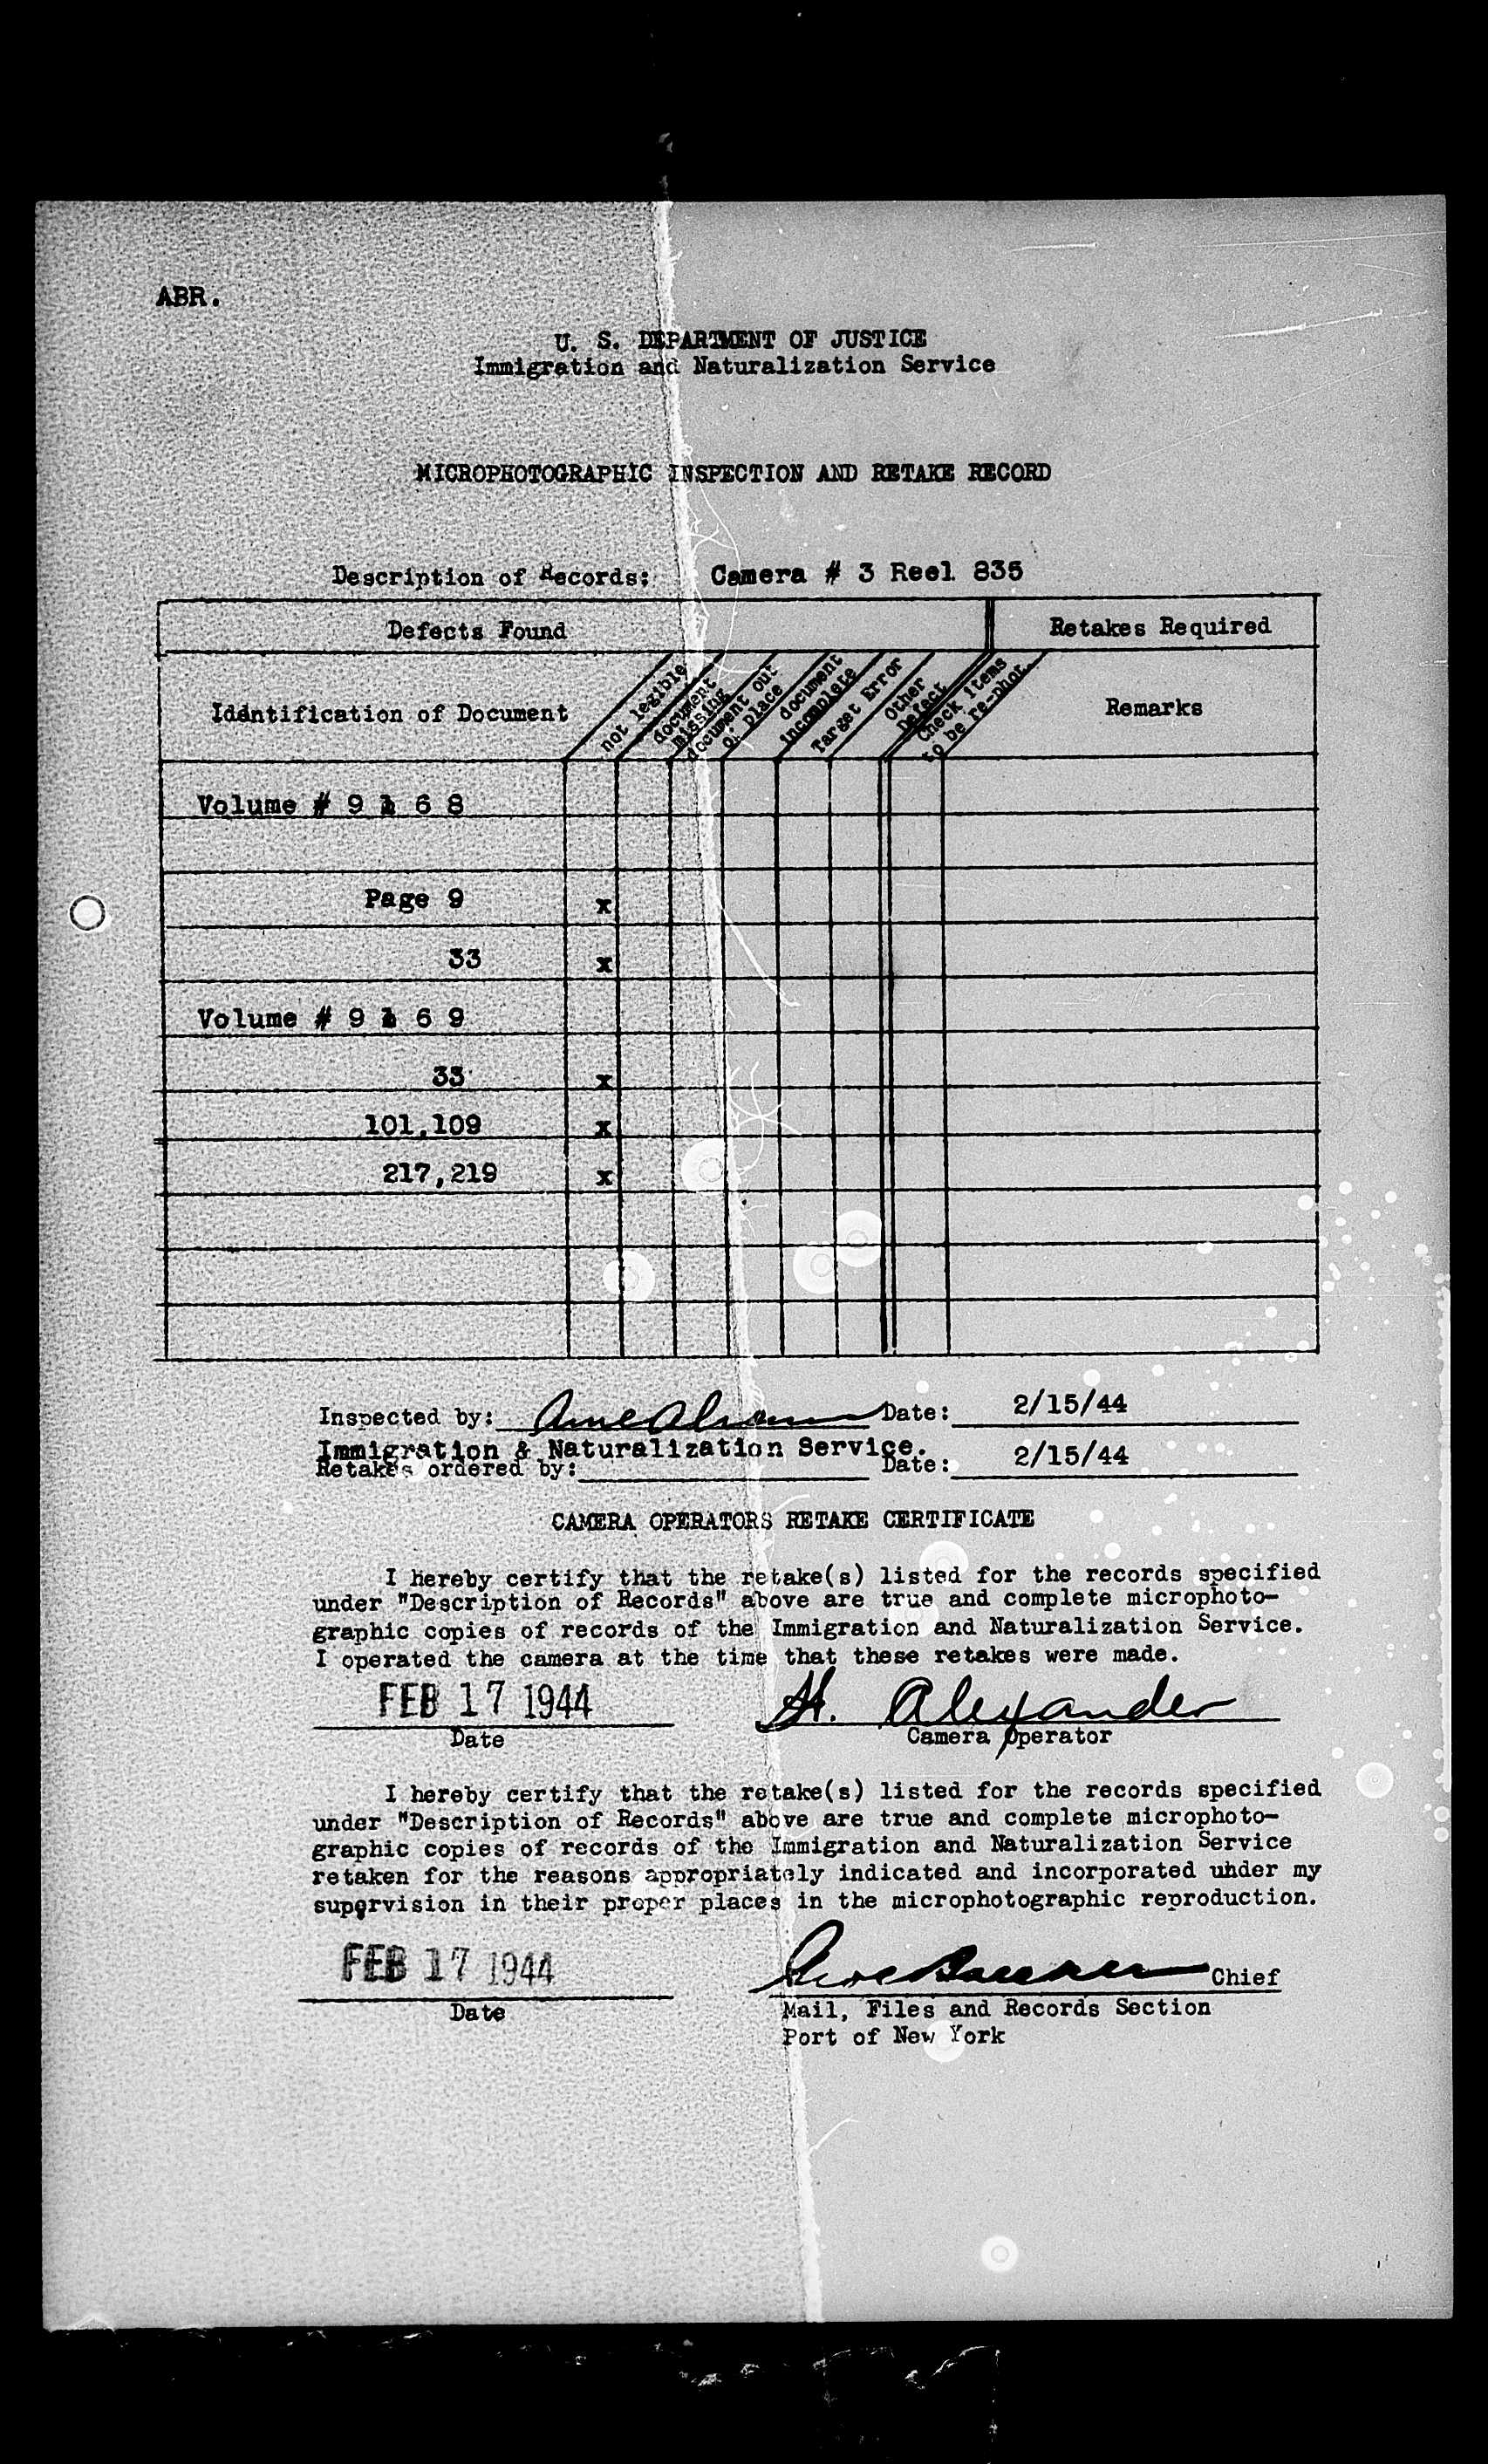 ABR.
U. S. DEPARTMENT OF JUSTICE
Immigration and Naturalization Service
MICROPHOTOGRAPHIC INSPECTION AND RETAKE RECORD
Description of Records: Camera # 3 Reel 835
Defects Found Retakes Required
Identification of Document
not legible
document
missing
document out
of place
document
incomplete
Target Error
Other
Defect
Check items
to be re-phot.
Remarks
Volume # 9 1 6 8
Page 9 x
33 x
Volume # 9 1 6 9
33 x
101,109 x
217,219 x
Inspected by: Date: 2/15/44
Immigration & Naturalization Service.
Retakes ordered by: Date: 2/15/44
CAMERA OPERATORS RETAKE CERTIFICATE
I hereby certify that the retake(s) listed for the records specified
under "Description of Records" above are true and complete microphoto-
graphic copies of records of the Immigration and Naturalization Service.
I operated the camera at the time that these retakes were made.
FEB 17 1944 H. Alexander
Date Camera Operator
I hereby certify that the retake(s) listed for the records specified
under "Description of Records" above are true and complete microphoto-
graphic copies of records of the Immigration and Naturalization Service
retaken for the reasons appropriately indicated and incorporated under my
supervision in their proper places in the microphotographic reproduction.
FEB 17 1944 Chief
Date Mail, Files and Records Section
Port of New York